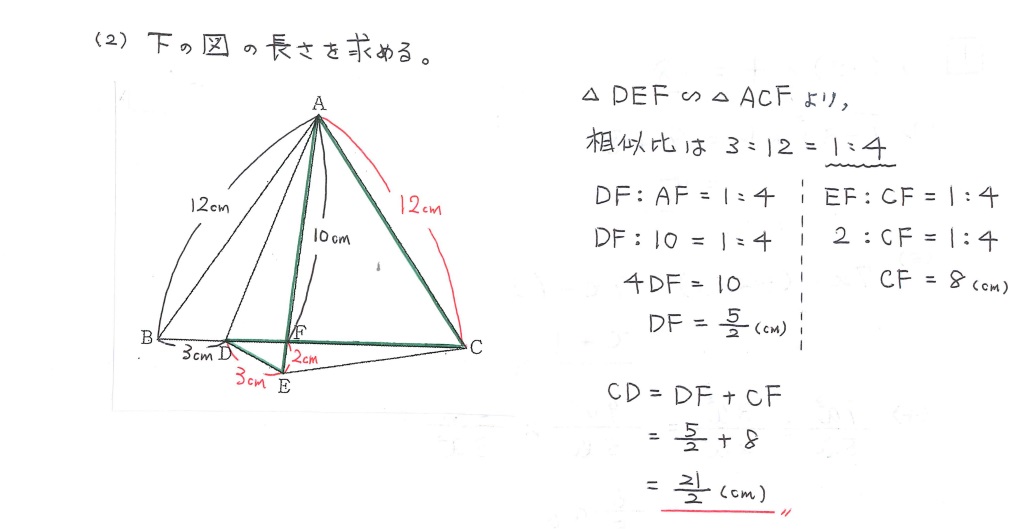 (2) 下の図の長さを求める。
A
12cm
12cm
10cm
B
3cm
D
F
2cm
3cm
E
C
△DEF∽△ACFより,
相似比は 3:12=1:4
DF:AF=1:4
DF:10=1:4
4DF=10
DF=5/2(cm)
EF:CF=1:4
2:CF=1:4
CF=8(cm)
CD=DF+CF
=5/2+8
=21/2(cm)〃